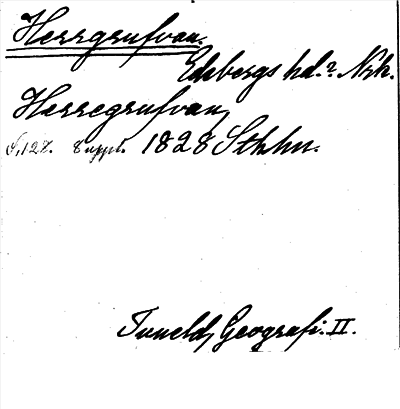 Herrgrufvan.
Edsbergs hd.? Nrk.
Herregrufvan,
S, 128. 8 uppl. 1828 Sthlm.
Tuneld, Geografi. II.